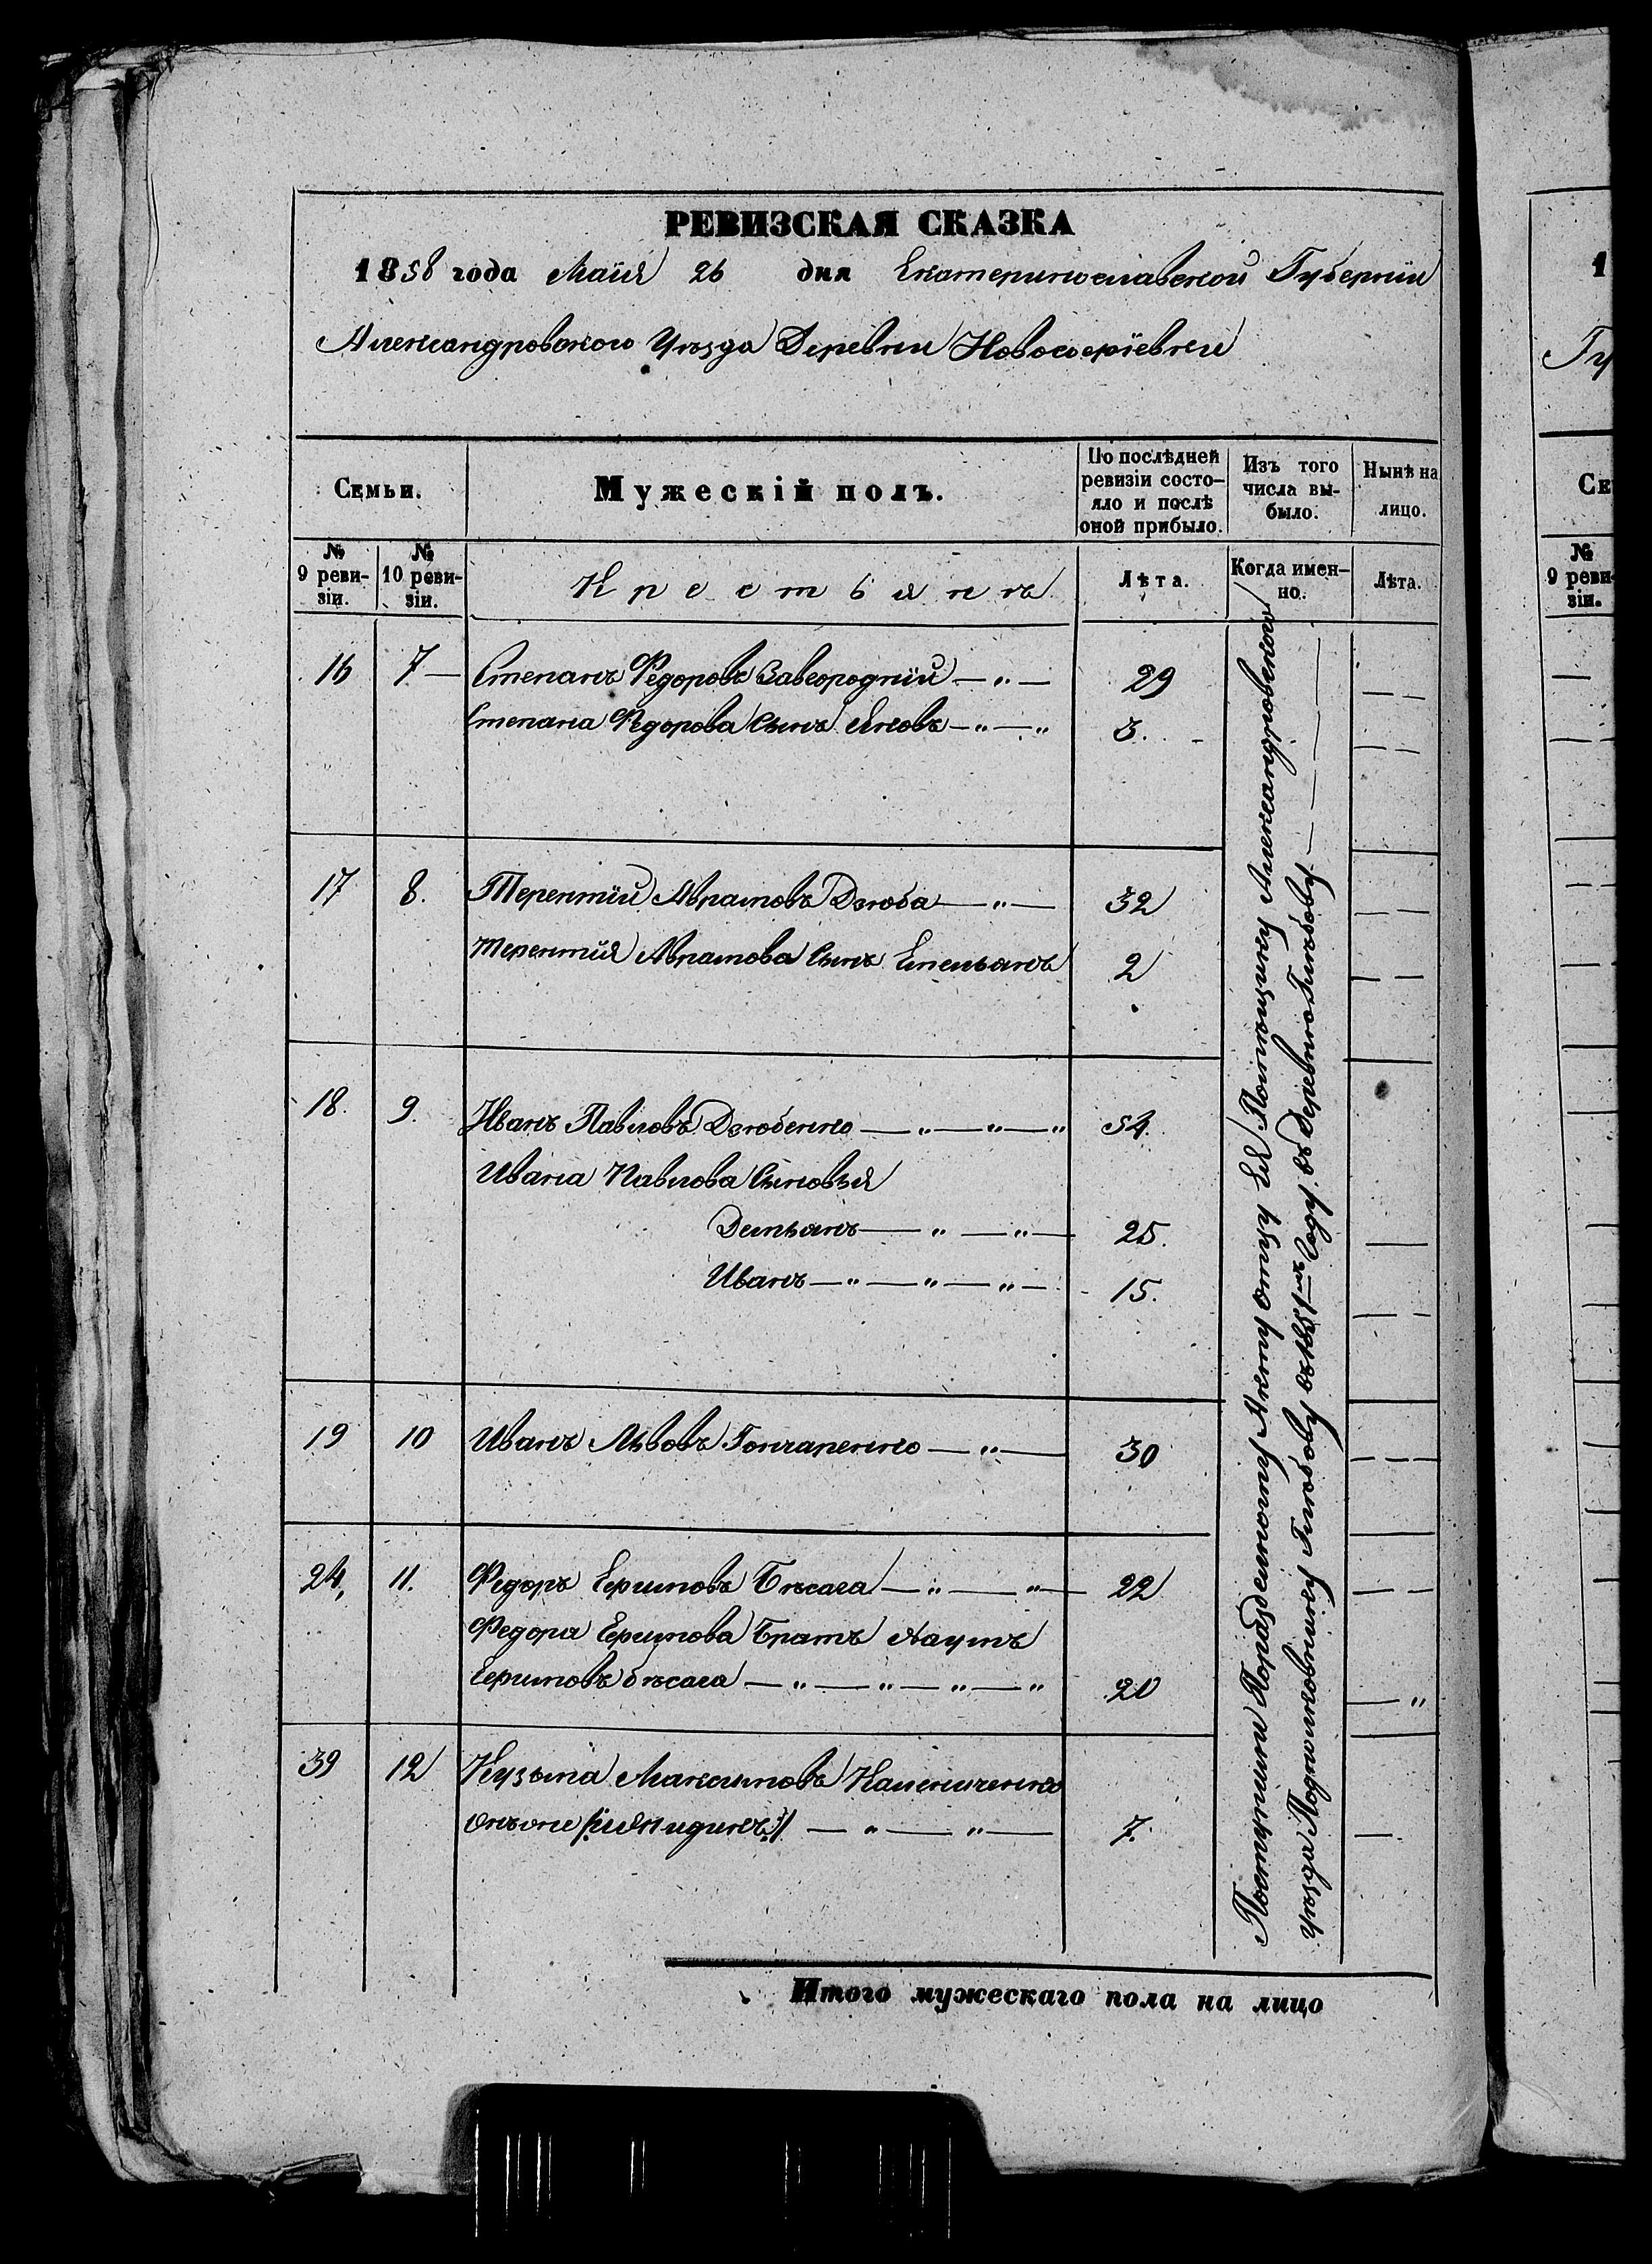 РЕВИЗСКАЯ СКАЗКА
1858 года Маія 26 дня Екатеринославской Губерніи
Александровскаго Уѣзда Деревни Новосергіевки
Семьи.
Мужескій полъ.
По послѣдней ревизіи состо-
яло и послѣ оной прибыло.
Изъ того числа вы-
было.
Нынѣ на лицо.
№ 9 реви-
зіи.
№ 10 реви-
зіи.
Крестьянъ
Лѣта.
Когда имен-
но.
Лѣта.
16 7 — Степанъ Федоровъ Завгородній — „ — 29 — —
Степана Федорова Сынъ Яковъ — „ — „ 3. — —
17 8. Терентій Аврамовъ Дзюба — „ — 32 — —
Терентія Аврамова Сынъ Емельянъ 2 — —
18. 9. Иванъ Павловъ Дзюбенко — „ — „ — „ 54.
Ивана Павлова Сыновья
Демьянъ — „ — „ — 25. —
Иванъ — „ — „ — „ — 15. — —
19 10 Иванъ Львовъ Гончаренко — „ — 30 — — —
24, 11. Федоръ Ефимовъ Бѣсага — „ — „ — 22 — —
Федора Ефимова Братъ Наумъ
Ефимовъ бѣсага — „ — „ — „ — „ 20 — „
39 12 Кузьма Максимовъ
онъ оне — „ — „ — 7. —
отцу Ея Помещику Александровского
уезда Подполковнику Глѣбову въ 1851мъ Году. въ Деревню Глѣбову —
Итого мужескаго пола на лицо
1
Гу
Се
№ 9 реви
зіи.